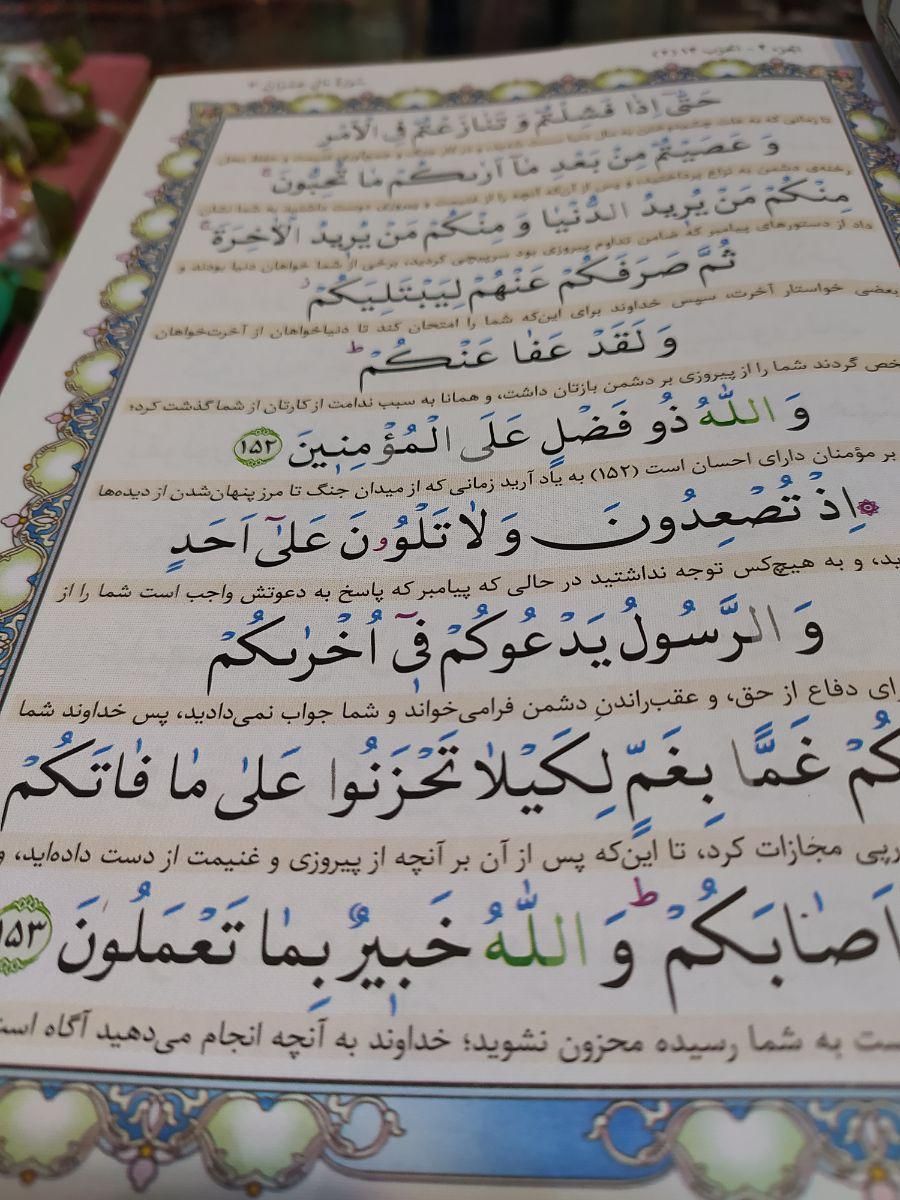 الجزء ۴ - الحزب ۱۴ (۲)
سورة ءال عمران ۳
حَتّٰىٓ اِذٰا فَشِلْتُمْ وَ تَنٰازَعْتُمْ فِى الْاَمْرِ
تا زمانی که به علت
وَ عَصَيْتُمْ مِنْ بَعْدِ مٰآ اَرٰىكُمْ مٰا تُحِبُّونَ ۚ
رخنه‌ی دشمن به نزاع پرداختید، و پس از آن‌که آنچه را از غنیمت و پیروزی دوست داشتید به شما نشان
مِنْكُمْ مَنْ يُرِيدُ الدُّنْيٰا وَ مِنْكُمْ مَنْ يُرِيدُ الْاٰخِرَةَ ۚ
داد از دستورهای پیامبر که ضامن تداوم پیروزی بود سرپیچی کردید، برخی از شما خواهان دنیا بودند و
ثُمَّ صَرَفَكُمْ عَنْهُمْ لِيَبْتَلِيَكُمْ ۖ
بعضی خواستار آخرت، سپس خداوند برای این‌که شما را امتحان کند تا دنیاخواهان از آخرت‌خواهان
وَ لَقَدْ عَفٰا عَنْكُمْ ط
خص گردند شما را از پیروزی بر دشمن بازتان داشت، و همانا به سبب ندامت از کارتان از شما گذشت کرد؛
وَ اللّٰهُ ذُو فَضْلٍ عَلَى الْمُؤْمِنِينَ ۱۵۲
بر مؤمنان دارای احسان است (۱۵۲) به یاد آرید زمانی که از میدان جنگ تا مرز پنهان‌شدن از دیده‌ها
اِذْ تُصْعِدُونَ وَ لٰا تَلْوُۥنَ عَلٰىٓ اَحَدٍ
ید، و به هیچ‌کس توجه نداشتید در حالی که پیامبر که پاسخ به دعوتش واجب است شما را از
وَ الرَّسُولُ يَدْعُوكُمْ فِىٓ اُخْرٰىكُمْ
رای دفاع از حق، و عقب‌راندنِ دشمن فرامی‌خواند و شما جواب نمی‌دادید، پس خداوند شما
كُمْ غَمًّا بِغَمٍّ لِكَيْلٰا تَحْزَنُوا عَلٰى مٰا فٰاتَكُمْ
رپی مجازات کرد، تا این‌که پس از آن بر آنچه از پیروزی و غنیمت از دست داده‌اید، و
اَصٰابَكُمْ ط وَ اللّٰهُ خَبِيرٌ بِمٰا تَعْمَلُونَ ۱۵۳
ست به شما رسیده محزون نشوید؛ خداوند به آنچه انجام می‌دهید آگاه است